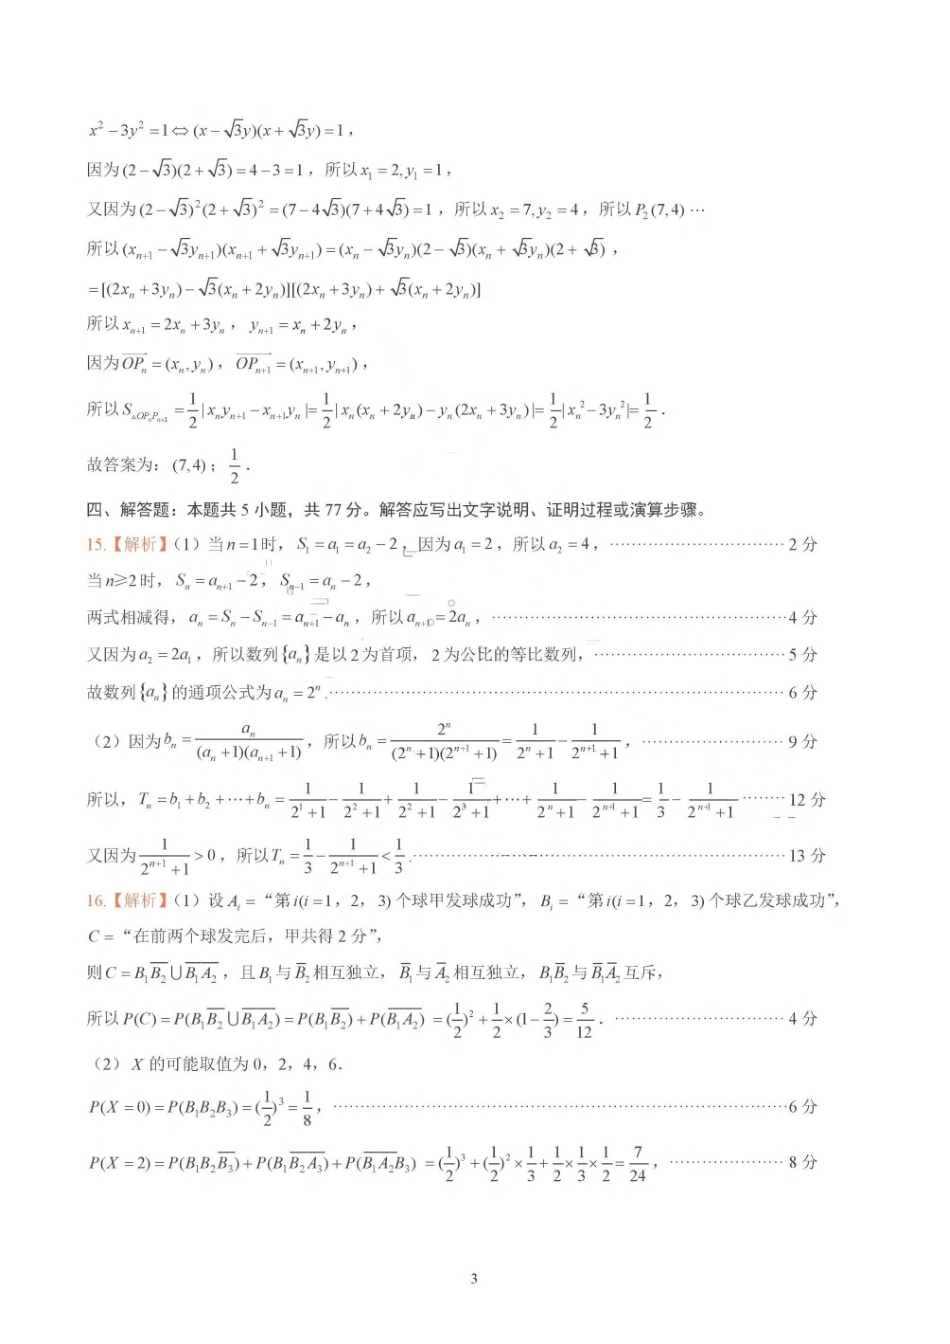 x² − 3y² = 1 ⇔ (x − √3y)(x + √3y) = 1，
因为(2 − √3)(2 + √3) = 4 − 3 = 1，所以x₁ = 2, y₁ = 1，
又因为(2 − √3)²(2 + √3)² = (7 − 4√3)(7 + 4√3) = 1，所以x₂ = 7, y₂ = 4，所以P₂(7,4) ⋯
所以(xₙ₊₁ − √3yₙ₊₁)(xₙ₊₁ + √3yₙ₊₁) = (xₙ − √3yₙ)(2 − √3)(xₙ + √3yₙ)(2 + √3)，
= [(2xₙ + 3yₙ) − √3(xₙ + 2yₙ)][(2xₙ + 3yₙ) + √3(xₙ + 2yₙ)]
所以xₙ₊₁ = 2xₙ + 3yₙ，yₙ₊₁ = xₙ + 2yₙ，
因为\overrightarrow{OPₙ} = (xₙ, yₙ)，\overrightarrow{OPₙ₊₁} = (xₙ₊₁, yₙ₊₁)，
所以S_{△OPₙPₙ₊₁} = 1/2|xₙyₙ₊₁ − xₙ₊₁yₙ| = 1/2|xₙ(xₙ + 2yₙ) − yₙ(2xₙ + 3yₙ)| = 1/2|xₙ² − 3yₙ²| = 1/2．
故答案为：(7,4)；1/2．
四、解答题：本题共 5 小题，共 77 分。解答应写出文字说明、证明过程或演算步骤。
15.【解析】（1）当n = 1时，S₁ = a₁ = a₂ − 2，因为a₁ = 2，所以a₂ = 4，⋯⋯2 分
当n≥2 时，Sₙ = aₙ₊₁ − 2，Sₙ₋₁ = aₙ − 2，
两式相减得，aₙ = Sₙ − Sₙ₋₁ = aₙ₊₁ − aₙ，所以aₙ₊₁ = 2aₙ，⋯⋯4 分
又因为a₂ = 2a₁，所以数列{aₙ}是以 2 为首项，2 为公比的等比数列，⋯⋯5 分
故数列{aₙ}的通项公式为aₙ = 2ⁿ．⋯⋯6 分
（2）因为bₙ = aₙ/((aₙ + 1)(aₙ₊₁ + 1))，所以bₙ = 2ⁿ/((2ⁿ + 1)(2ⁿ⁺¹ + 1)) = 1/(2ⁿ + 1) − 1/(2ⁿ⁺¹ + 1)，⋯⋯9 分
所以，Tₙ = b₁ + b₂ + ⋯ + bₙ = 1/(2¹ + 1) − 1/(2² + 1) + 1/(2² + 1) − 1/(2³ + 1) + ⋯ + 1/(2ⁿ + 1) − 1/(2ⁿ⁺¹ + 1) = 1/3 − 1/(2ⁿ⁺¹ + 1) ⋯⋯12 分
又因为1/(2ⁿ⁺¹ + 1) > 0，所以Tₙ = 1/3 − 1/(2ⁿ⁺¹ + 1) < 1/3．⋯⋯13 分
16.【解析】（1）设 Aᵢ = “第 i(i = 1，2，3) 个球甲发球成功”，Bᵢ = “第 i(i = 1，2，3) 个球乙发球成功”，
C = “在前两个球发完后，甲共得 2 分”，
则C = B₁\overline{B₂} ∪ \overline{B₁}\overline{A₂}，且B₁与\overline{B₂}相互独立，\overline{B₁}与\overline{A₂}相互独立，B₁\overline{B₂}与\overline{B₁}\overline{A₂}互斥，
所以 P(C) = P(B₁\overline{B₂} ∪ \overline{B₁}\overline{A₂}) = P(B₁\overline{B₂}) + P(\overline{B₁}\overline{A₂}) = (1/2)² + 1/2 × (1 − 2/3) = 5/12．⋯⋯4 分
（2）X 的可能取值为 0，2，4，6．
P(X = 0) = P(B₁B₂B₃) = (1/2)³ = 1/8，⋯⋯6 分
P(X = 2) = P(B₁B₂\overline{B₃}) + P(B₁\overline{B₂}\overline{A₃}) + P(\overline{B₁}\overline{A₂}B₃) = (1/2)³ + (1/2)² × 1/3 + 1/2 × 1/3 × 1/2 = 7/24，⋯⋯8 分
3